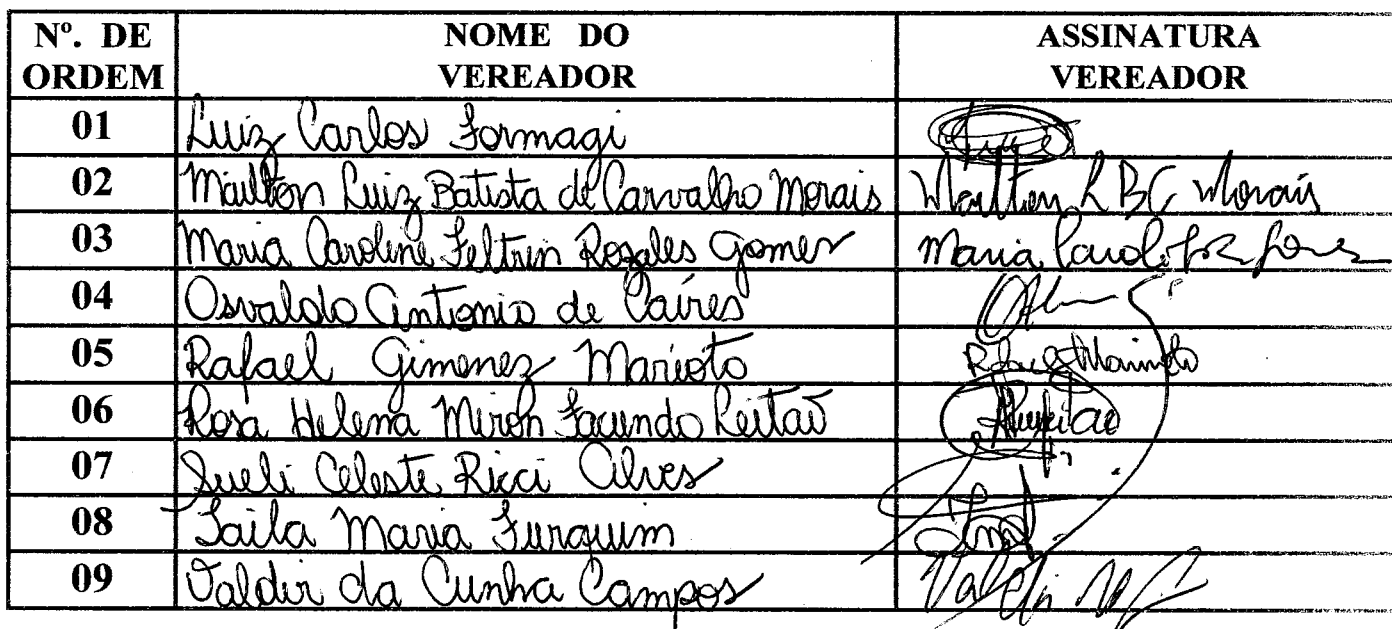 Nº. DE ORDEM NOME DO VEREADOR ASSINATURA VEREADOR
01 Luiz Carlos Formagi
02 Mailton Luiz Batista de Carvalho Morais Mailton L B C Morais
03 Maria Caroline Feltrin Rozales Gomes Maria Carol
04 Osvaldo Antonio de Caires
05 Rafael Gimenez Marioto Rafael Marioto
06 Rosa Helena Miron Facundo Leitaõ
07 Sueli Celeste Ricci Alves
08 Taila Maria Furquim
09 Valdir da Cunha Campos Valdir